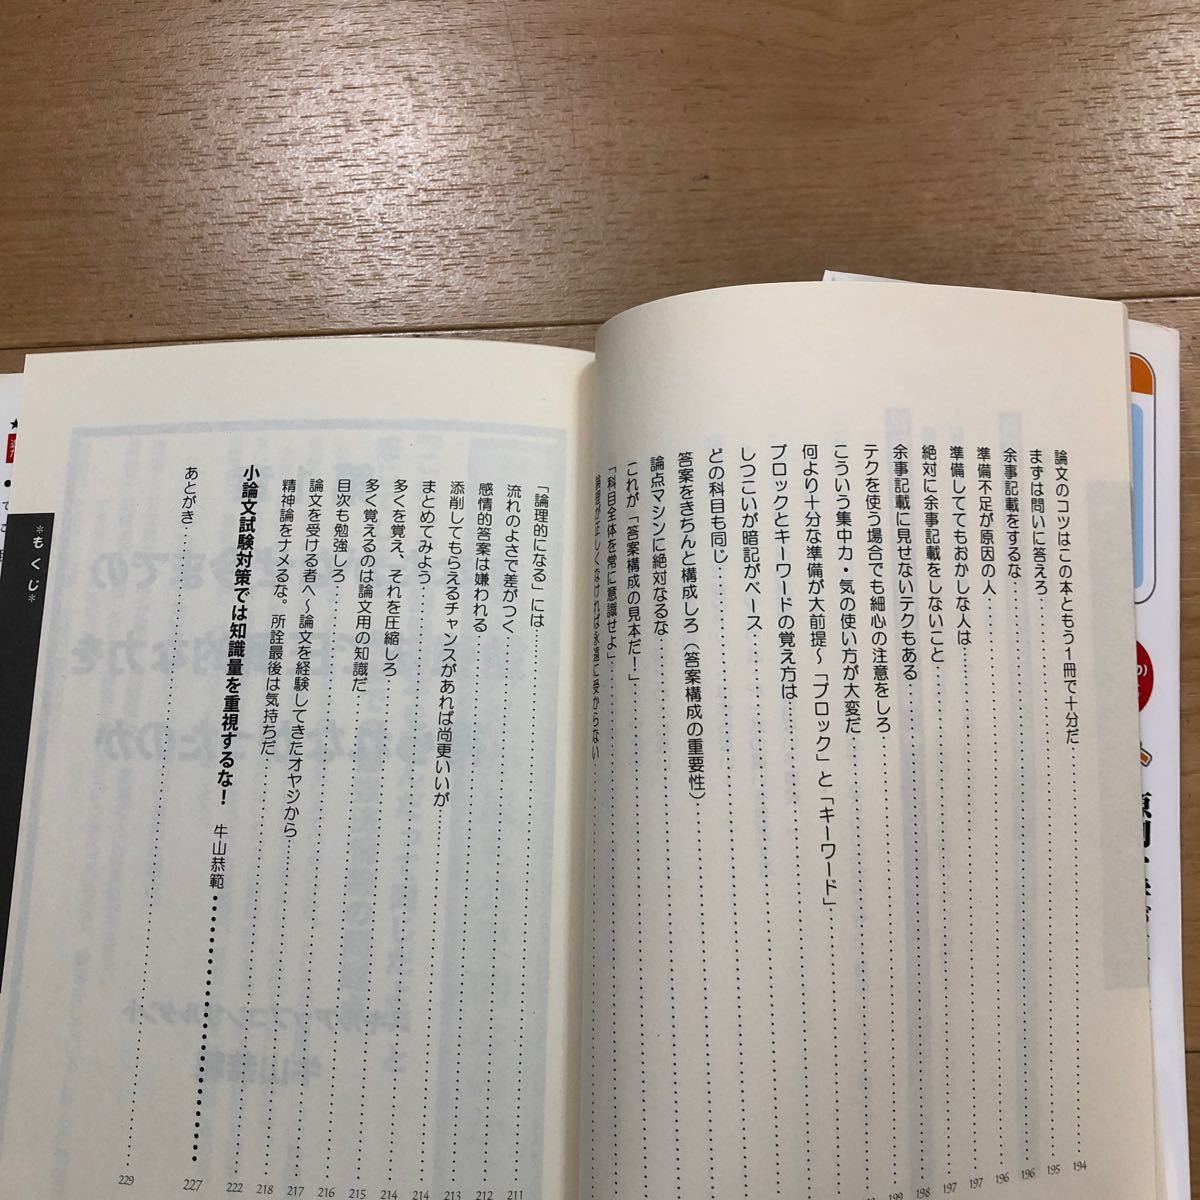 論文のコツはこの本ともう1冊で十分だ 194
まずは問いに答えろ 195
余事記載をするな 196
準備不足が原因の人 196
準備しててもおかしな人は 197
絶対に余事記載をしないこと 197
余事記載に見せないテクもある 198
テクを使う場合でも細心の注意をしろ 199
こういう集中力・気の使い方が大変だ
何より十分な準備が大前提〜「ブロック」と「キーワード」
ブロックとキーワードの覚え方は
しつこいが暗記がベース
どの科目も同じ
答案をきちんと構成しろ（答案構成の重要性）
論点マシンに絶対なるな
これが「答案構成の見本だ！」
「科目全体を常に意識せよ」
論理が正しくなければ永遠に受からない
「論理的になる」には 211
流れのよさで差がつく 212
感情的答案は嫌われる 213
添削してもらえるチャンスがあれば尚更いいが 214
まとめてみよう 214
多くを覚え、それを圧縮しろ 215
多く覚えるのは論文用の知識だ 216
目次も勉強しろ 217
論文を受ける者へ〜論文を経験してきたオヤジから 218
精神論をナメるな。所詮最後は気持ちだ 222
小論文試験対策では知識量を重視するな！ 牛山恭範 227
あとがき 229
＊もくじ＊